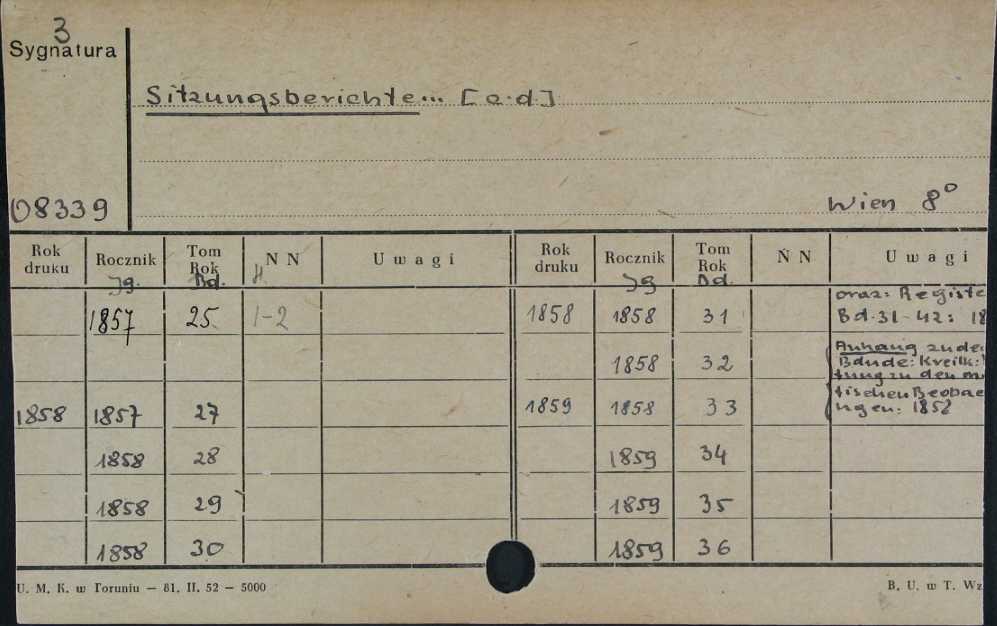 3
Sygnatura
Sitzungsberichte... [c.d.]
08339
Wien 8°
Rok druku Rocznik Tom Rok N N Uwagi Rok druku Rocznik Tom Rok N N Uwagi
Jg. Bd. H. Jg Bd.
1857 25 1-2 1858 1858 31 oraz: Registe
Bd. 31-42: 18
1858 32 Anhang zu de
Bdnde: Kreilk:
tung zu den m
1858 1857 27 1859 1858 33 tischen Beobac
ngen: 1858
1858 28 1859 34
1858 29 1859 35
1858 30 1859 36
U. M. K. w Toruniu — 81. II. 52 — 5000
B. U. w T. Wz